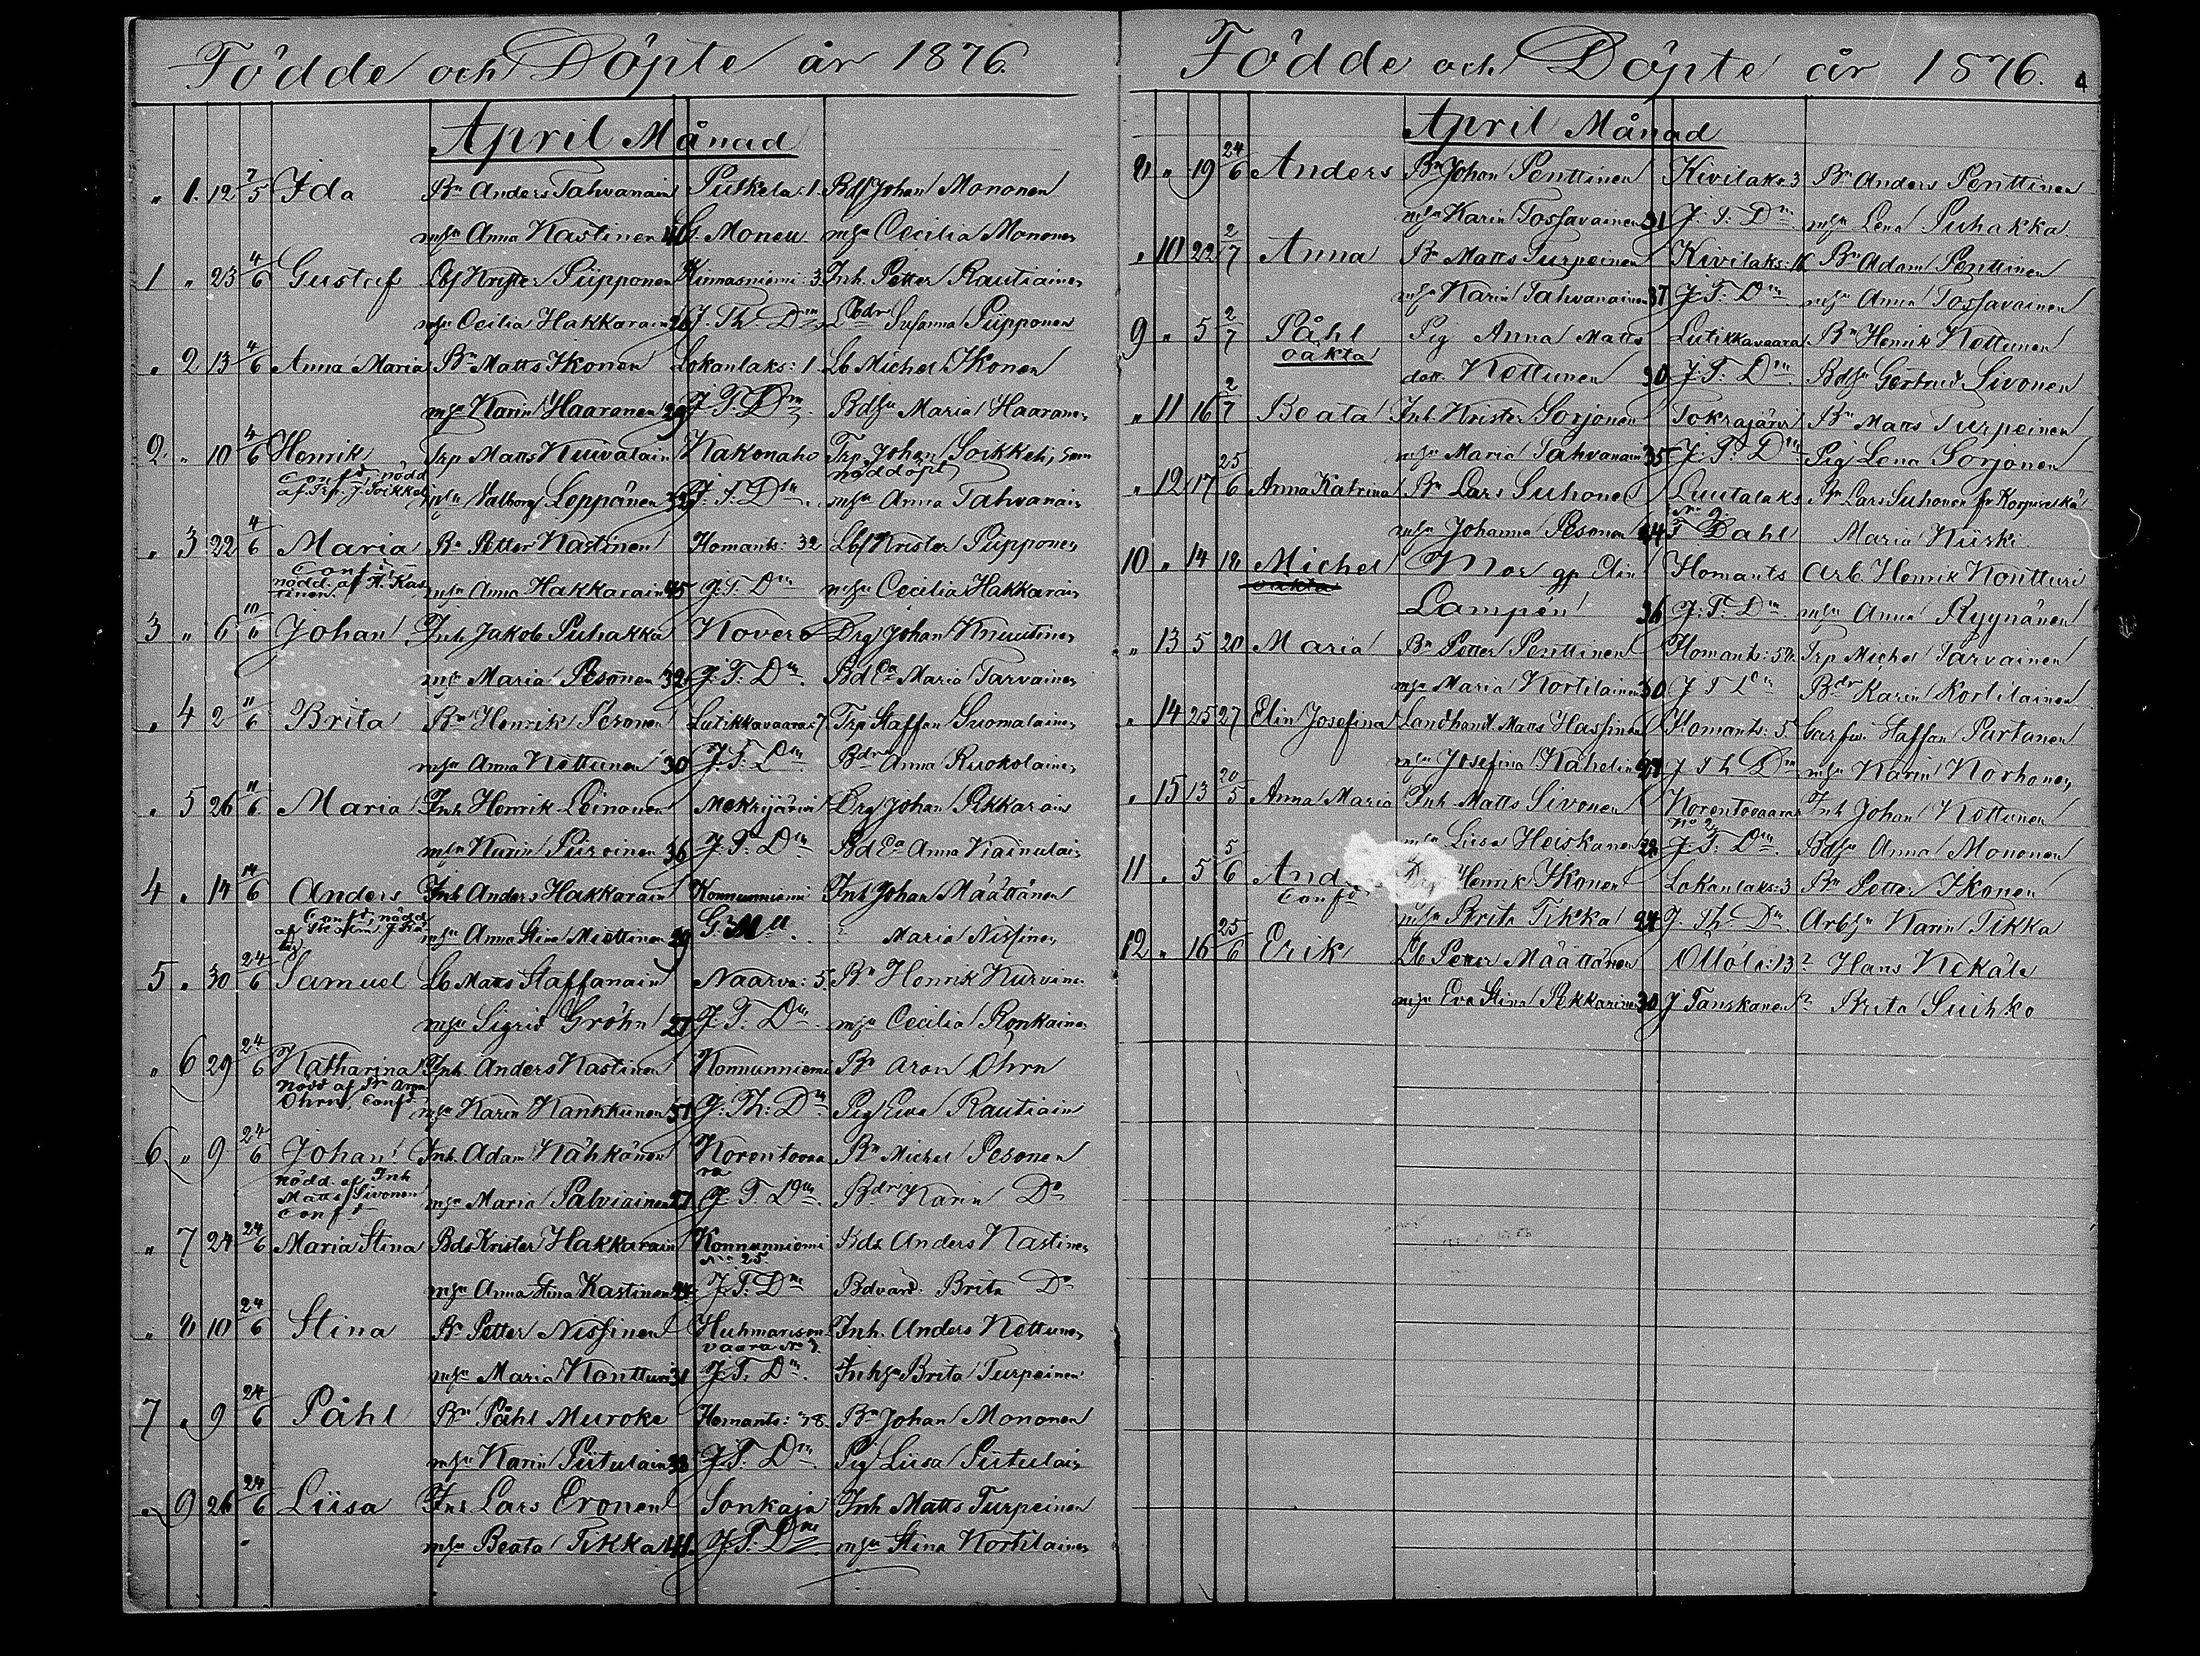 Födde och Döpte år 1876.
April Månad
„ 1. 12 7/5 Ida Bn Anders Tahvanain Putkela: 1. Bdf Johan Mononen
mhu Anna Kastinen 40 G. Moneu mhu Cecilia Mononen
1 „ 23 4/6 Gustaf Lbf Krister Piipponen Kinnasniemi: 3 Inh. Petter Rautiainen
mhu Cecilia Hakkarain J. Th. Dm Lbdr Susanna Piipponen
„ 2 13 4/6 Anna Maria Bn Matts Ikonen Lokanlaks: 1. Lb Michel Ikonen
mhu Karin Haaranen 29 J. T. Dm Bdhu Maria Haaranen
2 „ 10 4/6 Henrik Trp Matts Kuivalain Kakonaho Trp Johan Soikkeli, som
Conf. nödd nöddöpt
af Trp. J. Soikkeli mhu Valborg Leppänen 32 J. T. Dm mhu Anna Tahvanain
„ 3 22 4/6 Maria Bn Petter Kastinen Homants: 32 Lbf Krister Piipponen
Conf.
nödd. af A. Kastinen. mhu Anna Hakkarain 45 J. T. Dm mhu Cecilia Hakkarain
3 „ 6 10/„ Johan Inh Jakob Puhakka Kovero Drg Johan Knuutinen
mhu Maria Pesonen 32 J. T. Dm. Bdca Maria Tarvainen
„ 4 2 11/6 Brita Bn Henrik Pesonen Lutikkavaara: 7 Trp Staffan Suomalainen
mhu Anna Nettunen 30 J. T. Dm Bdr Anna Ruokolainen
„ 5 26 11/6 Maria Inh Henrik Leinonen Mekrijärvi Drg Johan Pikkarain
mhu Karin Piiroinen 36 J. T. Dm Bdca Anna Kainulain
4 „ 14 14/6 Anders Inh Anders Hakkarain Konnunniemi Inh Johan Määttänen
Conf., nödd
mhu Anna Stina Miettinen 29 G. Maria Nissinen
5 „ 30 24/6 Samuel Lb Matts Staffanain Naarva: 5. Bn Henrik Kurvinen
mhu Sigrid Gröhn 27 J. T. Dm mhu Cecilia Ronkainen
„ 6 29 24/6 Katharina Inh. Anders Kastinen Konnunniemi Bn Aron Öhrn
Nödd af Bn Aron
Öhrn, Conf. mhu Karin Kankkunen 51 J. Th: Dm Pig Eva Rautiain
6 „ 9 24/6 Johan Inh. Adam Nähkönen Korentovaara Bn Michel Pesonen
nödd. af Inh
Matts Sivonen mhu Maria Palviainen 27 J. T. Dm Bdr Karin Do
Conf.
„ 7 24 24/6 Maria Stina Bds Krister Hakkarain Konnunniemi Bds Anders Kastinen
No 25.
mhu Anna Stina Kastinen 24 J. T. Dm Bdvärd. Brita Do
„ 8 10 24/6 Stina Bn Petter Nissinen Huhmarisen Inh. Anders Nettunen
vaara No 7
mhu Maria Kontturi 31 J. T. Dm. Inhhu Brita Turpeinen
7 „ 9 24/6 Påhl Bn Påhl Muroke Homants: 78. Bn Johan Mononen
mhu Karin Piitulain 38 J. T. Dm. Pig Liisa Piitulain
„ 9 26 24/6 Liisa Inh Lars Eronen Sonkaja Inh Matts Turpeinen
mhu Beata Tikka 41 J. T. Dm mhu Stina Kortilainen
Födde och Döpte år 1876. 4
April Månad
8 „ 19 24/6 Anders Bn Johan Penttinen Kivilaks: 3 Bn Anders Penttinen
mhu Karin Tossavainen 31 J. T. Dm mhu Lena Puhakka
„ 10 22 2/7 Anna Bn Matts Turpeinen Kivilaks: 16 Bn Adam Penttinen
mhu Karin Tahvanainen 37 J. T. Dm mhu Anna Tossavainen
9 „ 5 2/7 Påhl Pig Anna Matts Lutikkavaara Bn Henrik Nettunen
oäkta
dott. Nettunen 30 J. T. Dm Bdhu Gertrud Sivonen
„ 11 16 2/7 Beata Inh Krister Sorjonen Tokrajärvi Bn Matts Turpeinen
mhu Maria Tahvanain 35 J. T. Dm Pig Lena Sorjonen
„ 12 17 25/6 Anna Katrina Bn Lars Suhonen Luutalaks Bn Lars Suhonen fr Korpiselkä
No 9.
mhu Johanna Pesonen 44 F Dahl Maria Kiiski
10 „ 14 18 Michel Mor gp Elin Homants Arb. Henrik Kontturi
oäkta
Lampen 36 J. T. Dm mhu Anna Ryynänen
„ 13 5 20 Maria Bn Petter Penttinen Homants: 50. Trp Michel Tarvainen
mhu Maria Kortilainen 30 J T Dm Bdr Karin Kortilainen
„ 14 25 27 Elin Josefina Landhand. Matts Hassinen Homants: 5. Garfv. Staffan Partanen
mhu Josefina Kahelin 27 J Th Dm mhu Karin Korhonen
„ 15 13 20/5 Anna Maria Inh Matts Sivonen Korentovaara Inh Johan Nettunen
No 2
mhu Liisa Heiskanen 32 J. T. Dm. Bdhu Anna Mononen
11 „ 5 5/6 And Drg Henrik Ikonen Lokanlaks: 3 Bn Petter Ikonen
Conf.
mhu Brita Tikka 24 J. Th. Dm Arbhu Karin Tikka
12 „ 16 25/6 Erik Lb Petter Määttänen Öllölä: 13 Hans Nekäle
mhu Eva Stina Pikkarinen 30 J Tanskanen Brita Suihko